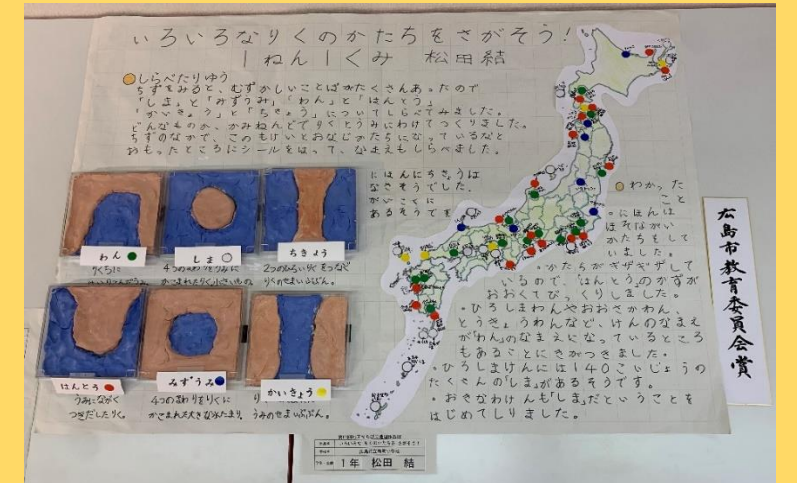 いろいろなりくのかたちをさがそう!
1ねん1くみ 松田結
しらべたりゆう
ちずをみると、むずかしいことばがたくさんあったので
「しま」と「みずうみ」「わん」と「はんとう」
「かいきょう」と「ちきょう」についてしらべてみました。
どんなものか、かみねんどでりくとうみにわけてつくりました。
ちずのなかで、このもけいとおなじかたちになっているなと
おもったところにシールをはって、なまえもしらべました。
にほんにちきょうは
なさそうでした。
がいこくに
あるそうです
わん
しま
ちきょう
りくちに
4つのまわりをうみに
かこまれたりく小さいもの
2つのひろいりくをつなぐ
りくのせまいぶぶん。
はんとう
みずうみ
かいきょう
うみにながく
つきだしたりく。
4つのまわりをりくに
かこまれた大きなみずたまり。
うみのせまいぶぶん。
わかった
こと
・にほんは
ほそながい
かたちをして
いました。
・かたちがギザギザして
いるので、はんとうのかずが
おおくてびっくりしました。
・ひろしまわんやおおさかわん、
とうきょうわんなど、けんのなまえ
が「わん」のなまえになっているところ
もあることにきがつきました。
・ひろしまけんには140こいじょうの
たくさんの「しま」があるそうです。
・おきなわけんも「しま」だということを
はじめてしりました。
広島市教育委員会賞
1年 松田 結